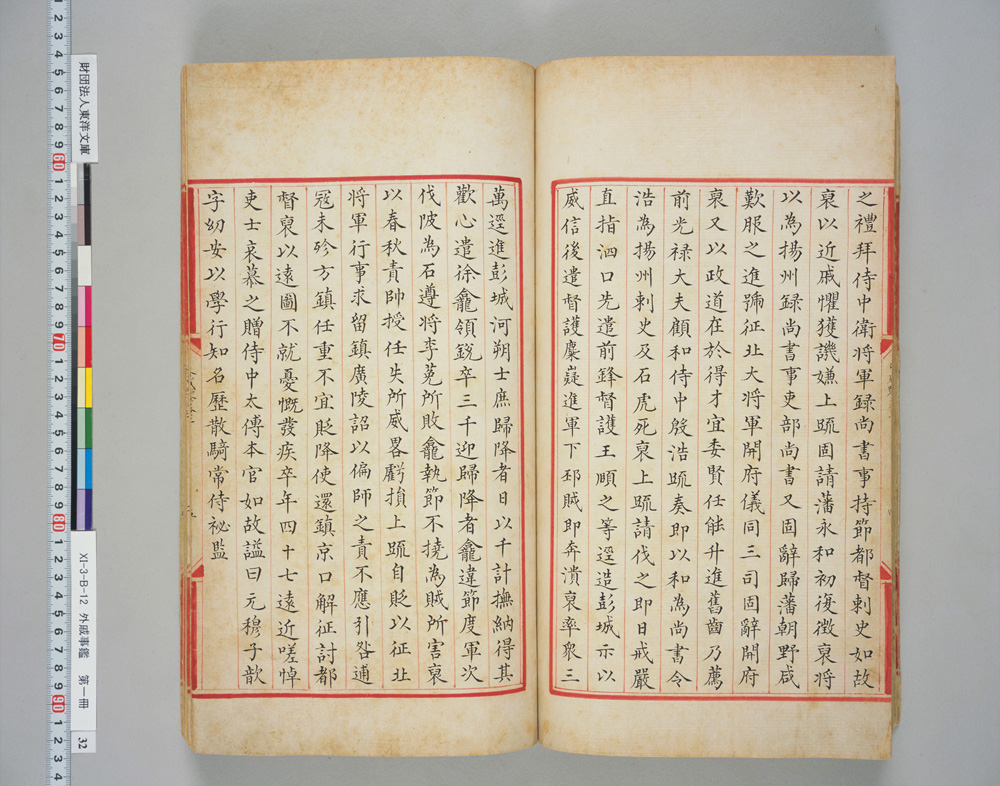 之禮拜侍中衛將軍録尚書事持節都督刺史如故
裒以近戚懼獲譏嫌上䟽固請藩永和初復徵裒將
以為揚州録尚書事吏部尚書又固辭歸藩朝野咸
歎服之進號征北大將軍開府儀同三司固辭開府
裒又以政道在於得才宜委賢任能升進舊齒乃薦
前光禄大夫顧和侍中殷浩䟽奏即以和為尚書令
浩為揚州刺史及石虎死裒上䟽請伐之即日戒嚴
直指泗口先遣前鋒督護王頤之等逕造彭城示以
威信後遣督護麋嶷進軍下邳賊即奔潰裒率衆三
萬逕進彭城河朔士庶歸降者日以千計撫納得其
歡心遣徐龕領銳卒三千迎歸降者龕違節度軍次
伐陂為石遵將李莵所敗龕執節不撓為賊所害裒
以春秋責帥授任失所威畧虧損上䟽自貶以征北
將軍行事求留鎮廣陵詔以偏師之責不應引咎逋
冦未殄方鎮任重不宜貶降使還鎮京口解征討都
督裒以遠圖不就憂慨發疾卒年四十七遠近嗟悼
吏士哀慕之贈侍中太傅本官如故謚曰元穆子歆
字幼安以學行知名歴散騎常侍祕監
財団法人東洋文庫
XI-3-B-12 外戚事鑑 第一冊
32